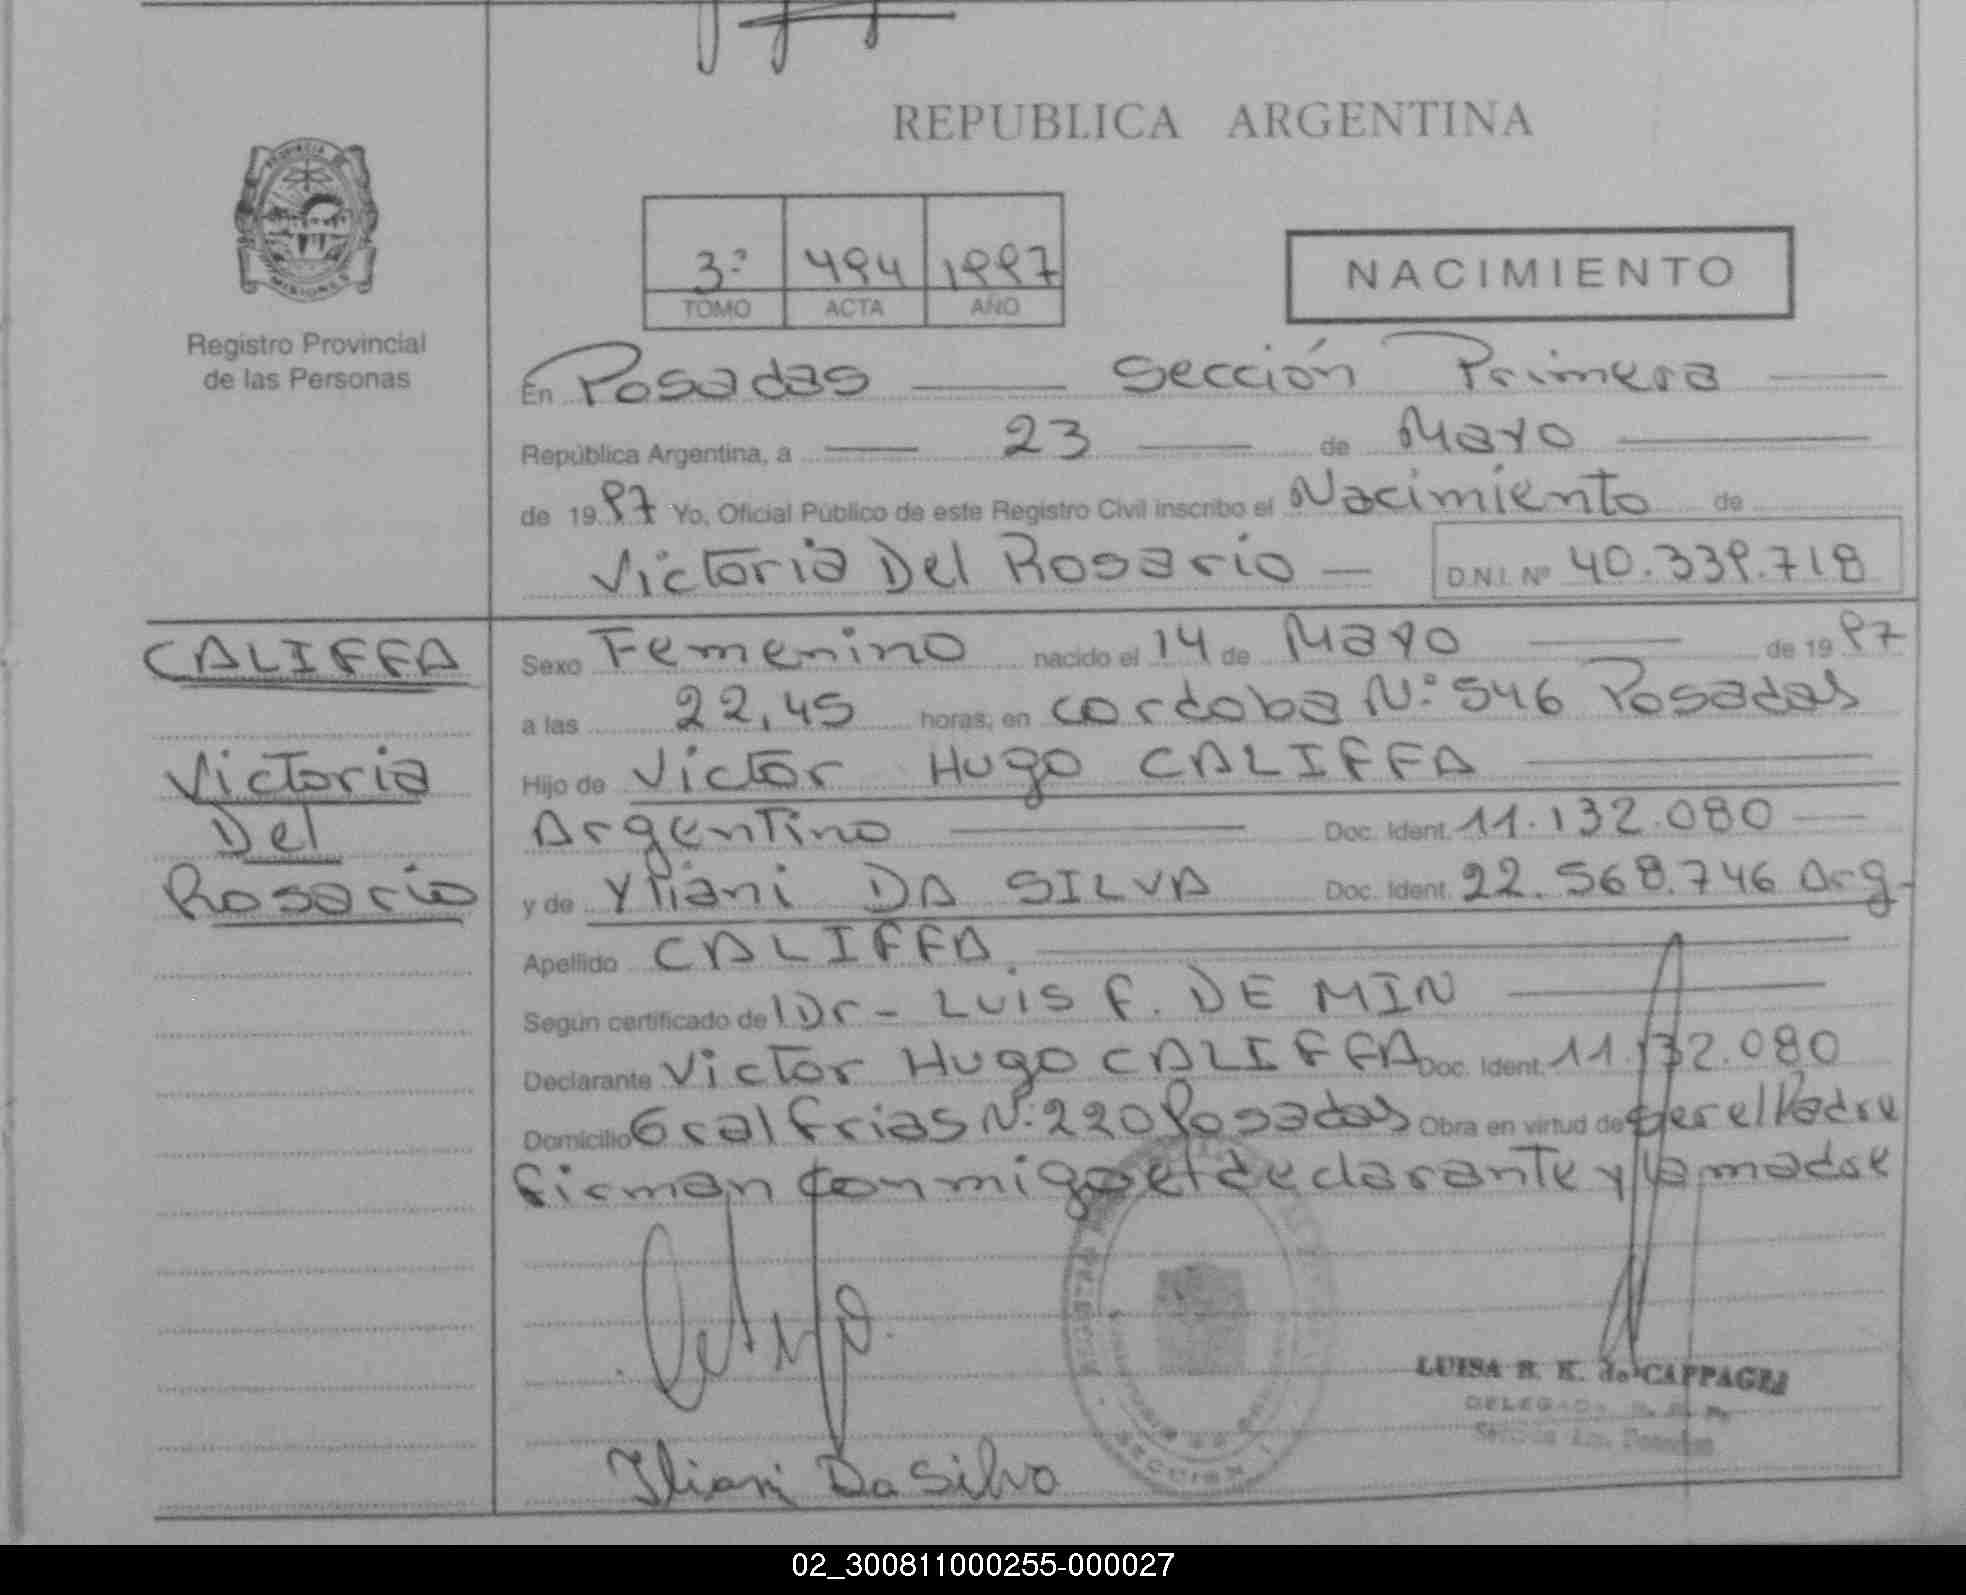 REPUBLICA ARGENTINA
PROVINCIA DE
MISIONES
Registro Provincial
de las Personas
3º 494 1997
TOMO ACTA AÑO
NACIMIENTO
En Posadas Sección Primera
República Argentina, a 23 de Mayo
de 1997 Yo, Oficial Público de este Registro Civil inscribo el Nacimiento de
Victoria Del Rosario D.N.I. Nº 40.339.718
CALIFFA
Victoria
Del
Rosario
Sexo Femenino nacido el 14 de Mayo de 1997
a las 22,45 horas, en cordoba Nº 546 Posadas
Hijo de Victor Hugo CALIFFA
Argentino Doc. Ident. 11.132.080
y de Yliani DA SILVA Doc. Ident. 22.568.746 Arg.
Apellido CALIFFA
Según certificado de Dr- LUIS F. DE MIN
Declarante Victor Hugo CALIFFA Doc. Ident. 11.132.080
Domicilio Gral frias Nº 220 Posadas Obra en virtud de ser el Padre
firman conmigo el declarante y la madre
LUISA K. de CAPPAGLI
DELEGADA
Iliani Da Silva
02_300811000255-000027